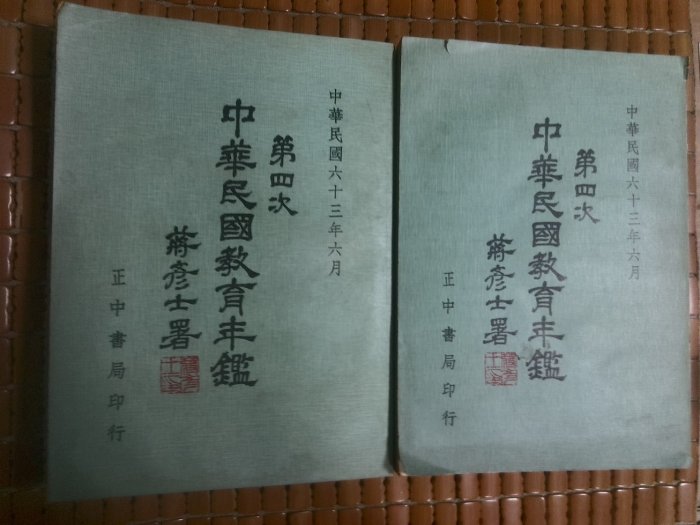 中華民國六十三年六月
第四次
中華民國教育年鑑
蔣彥士署
正中書局印行
中華民國六十三年六月
第四次
中華民國教育年鑑
蔣彥士署
正中書局印行